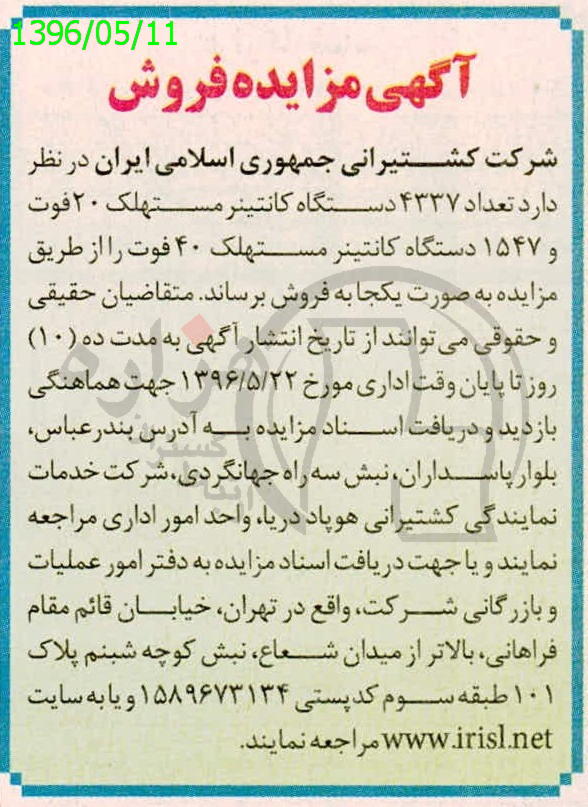 1396/05/11
آگهی مزایده فروش
شرکت کشتیرانی جمهوری اسلامی ایران در نظر
دارد تعداد ۴۳۳۷ دستگاه کانتینر مستهلک ۲۰ فوت
و ۱۵۴۷ دستگاه کانتینر مستهلک ۴۰ فوت را از طریق
مزایده به صورت یکجا به فروش برساند. متقاضیان حقیقی
و حقوقی می توانند از تاریخ انتشار آگهی به مدت ده (۱۰)
روز تا پایان وقت اداری مورخ ۱۳۹۶/۵/۲۲ جهت هماهنگی
بازدید و دریافت اسناد مزایده به آدرس بندرعباس،
بلوار پاسداران، نبش سه راه جهانگردی، شرکت خدمات
نمایندگی کشتیرانی هوپاد دریا، واحد امور اداری مراجعه
نمایند و یا جهت دریافت اسناد مزایده به دفتر امور عملیات
و بازرگانی شرکت، واقع در تهران، خیابان قائم مقام
فراهانی، بالاتر از میدان شعاع، نبش کوچه شبنم پلاک
۱۰۱ طبقه سوم کدپستی ۱۵۸۹۶۷۳۱۳۴ و یا به سایت
www.irisl.net مراجعه نمایند.
هزاره